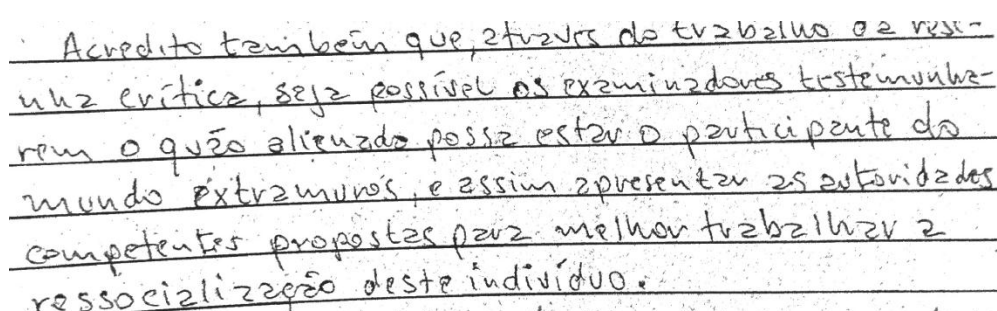 Acredito também que, através do trabalho da rese-
nha crítica, seja possível os examinadores testemunha-
rem o quão alienado possa estar o participante do
mundo extramuros, e assim apresentar as autoridades
competentes propostas para melhor trabalhar a
ressocialização deste indivíduo.